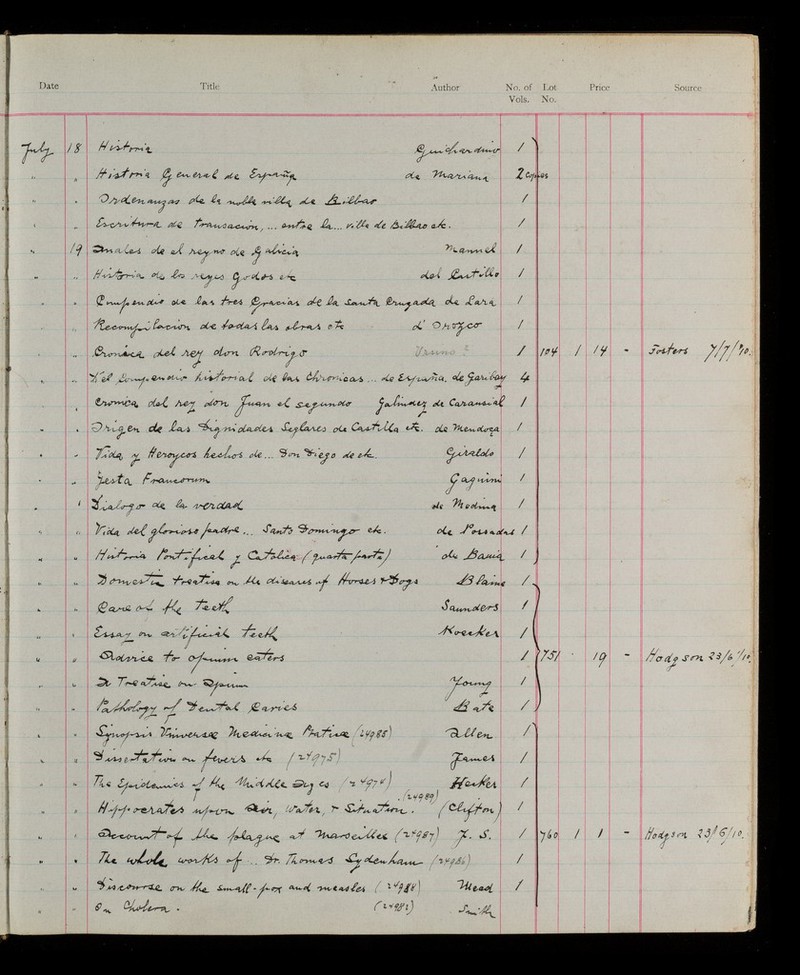 Date Title Author No. of Vols. Lot No. Price Source
July 18 Historia Guichardino 1
" " Historia General de España de Mariana 2 copies
" " Ordenanzas de la noble villa de Bilbao 1
Escritura de transacion, ... entre la ... villa de Bilbao etc. 1
" 19 Anales de el reyno de Galicia Manuel 1
" " Historia de los reyes Godos etc del Castillo 1
" " Compendio de las tres Gracias de la Santa Cruzada de Lara 1
" " Recompilacion de todas las obras etc d'Orozco 1
" " Cronica del rey don Rodrigo 1 104 1 14 - Fosters 7/7/10.
" " el Compendio historial de las Chronicas ... de España. de Garibay 4
" Cronica del rey don Juan el segundo Galindez de Caravaial 1
" " Origen de las Dignidades Seglares de Castilla etc. de Mendoça 1
" " Vida y Heroycos hechos de ... Don Diego de etc. Giraldo 1
" " Gesta Francorum Gaguini 1
" " Dialogo de la verdad de Medina 1
" " Vida del glorioso padre ... Santo Domingo etc. de Possadas 1
" " Historia Pontifical y Catolica (quarta parte) de Bauia 1
" " Domestic treatise on the diseases of Horses & Dogs Blaine 1
" " Care of the Teeth Saunders 1
" " Essay on artificial teeth Koecker 1
" " Advice to opium eaters 1 751 19 - Hodgson 23/6/10.
" " A Treatise on Opium Young 1
" " Pathology of Dental Caries Bate 1
" " Synopsis Universae Medicinae Practicae (24985) Allen 1
" " Dissertation on fevers etc (24975) James 1
" " The Epidemics of the Middle Ages Hecker 1
" " Hippocrates upon Air, Water, & Situation. (24989) (Clifton) 1
" " Account of the plague at Marseilles (24987) J. S. 1 760 1 1 - Hodgson 23/6/10.
" " The whole works of .. Dr. Thomas Sydenham (24986) 1
" " Discourse on the small-pox and measles (24988) Mead 1
" " On Cholera. Smith